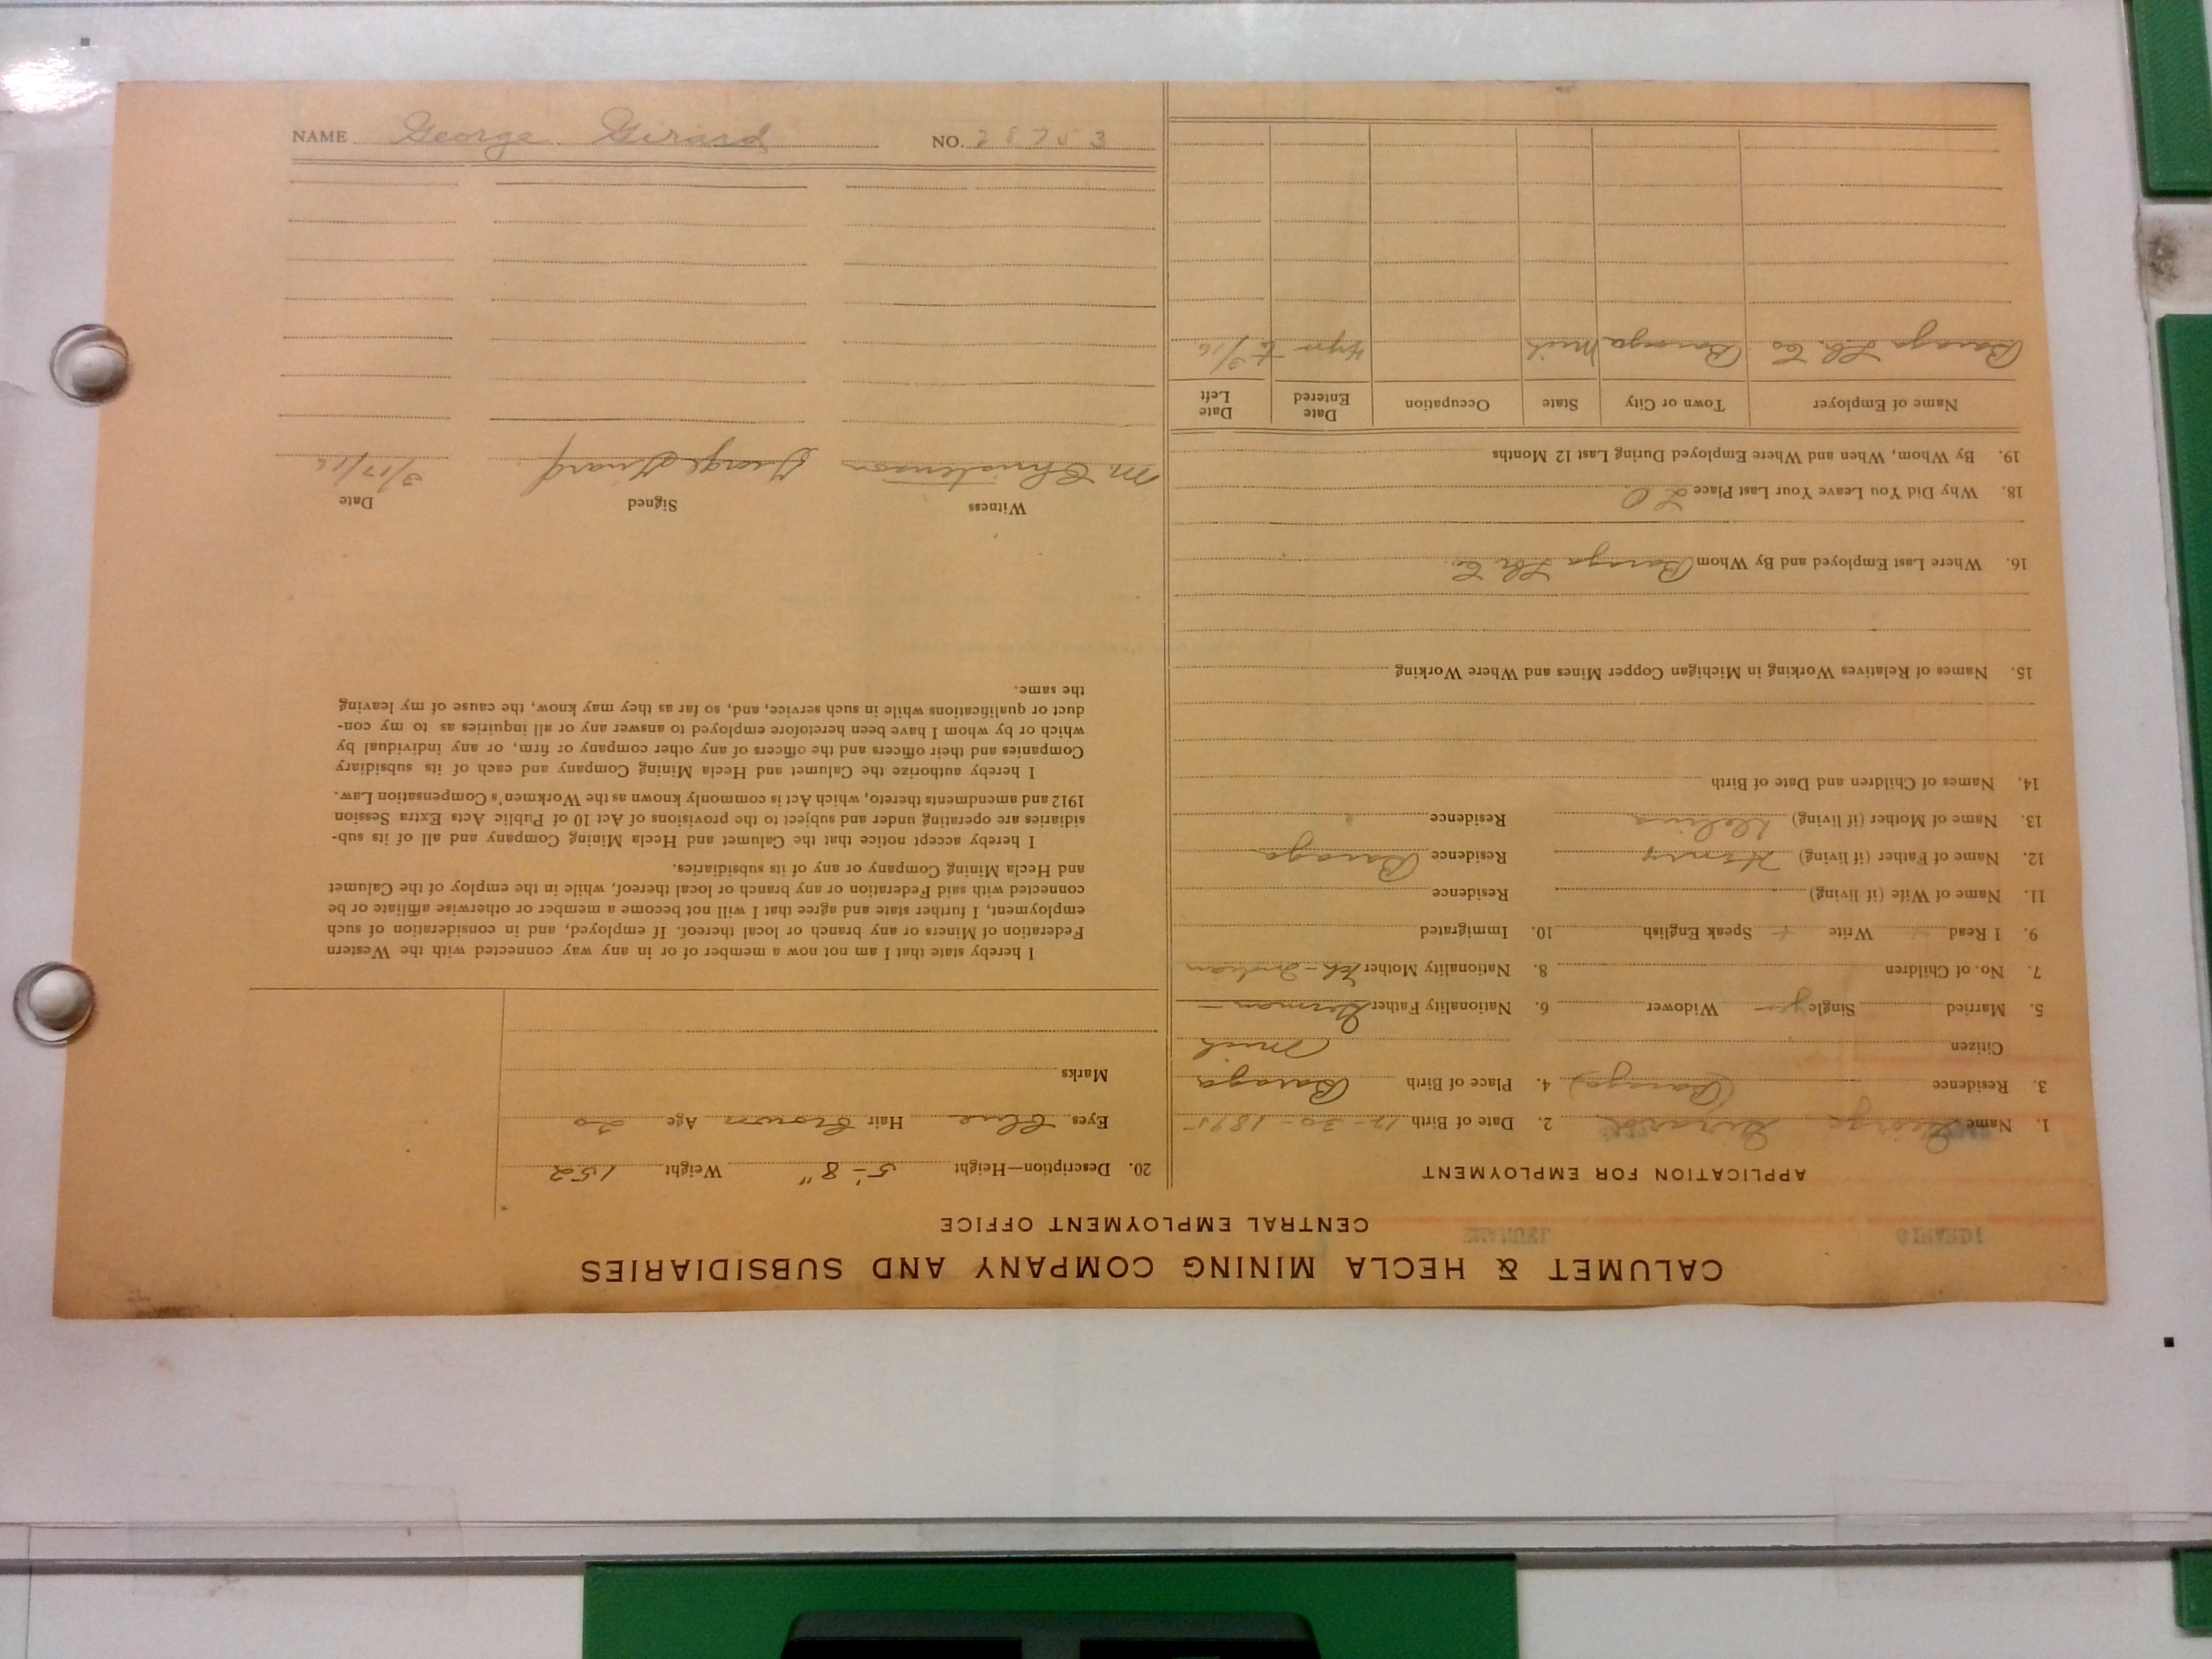 CALUMET & HECLA MINING COMPANY AND SUBSIDIARIES
CENTRAL EMPLOYMENT OFFICE
APPLICATION FOR EMPLOYMENT
1. Name George Girard 2. Date of Birth 12-30-1895
3. Residence Baraga 4. Place of Birth Baraga
Citizen Mich
5. Married Single yes Widower 6. Nationality Father German
7. No. of Children 8. Nationality Mother Fch-Indian
9. I Read Write Speak English 10. Immigrated
11. Name of Wife (if living) Residence
12. Name of Father (if living) Henry Residence Baraga
13. Name of Mother (if living) Residence
14. Names of Children and Date of Birth
15. Names of Relatives Working in Michigan Copper Mines and Where Working
16. Where Last Employed and By Whom Baraga Lbr. Co.
18. Why Did You Leave Your Last Place L O
19. By Whom, When and Where Employed During Last 12 Months
Name of Employer Town or City State Occupation Date Entered Date Left
Baraga Lbr. Co Baraga Mich 4 yrs to 3/16
20. Description—Height 5'-8" Weight 152
Eyes blue Hair brown Age 20
Marks
I hereby state that I am not now a member of or in any way connected with the Western
Federation of Miners or any branch or local thereof. If employed, and in consideration of such
employment, I further state and agree that I will not become a member or otherwise affiliate or be
connected with said Federation or any branch or local thereof, while in the employ of the Calumet
and Hecla Mining Company or any of its subsidiaries.
I hereby accept notice that the Calumet and Hecla Mining Company and all of its sub-
sidiaries are operating under and subject to the provisions of Act 10 of Public Acts Extra Session
1912 and amendments thereto, which Act is commonly known as the Workmen's Compensation Law.
I hereby authorize the Calumet and Hecla Mining Company and each of its subsidiary
Companies and their officers and the officers of any other company or firm, or any individual by
which or by whom I have been heretofore employed to answer any or all inquiries as to my con-
duct or qualifications while in such service, and, so far as they may know, the cause of my leaving
the same.
Witness Signed Date
M Christenson George Girard 3/17/16
NAME George Girard NO. 28753